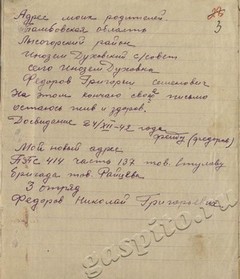 Адрес моих родителей.
Тамбовская область
Лысогорский район
Духовский с/совет
село Духовка
Федоров Григорий Семенович
На этом кончаю своё письмо
остаюсь жив и здоров.
Досвидание 24/XII-42 года
(Федоров)
Мой новый адрес
ППС 414 часть 137 тов.
Бригада тов.
3 отряд
Федоров Николай Григорьевич
gaspito.ru